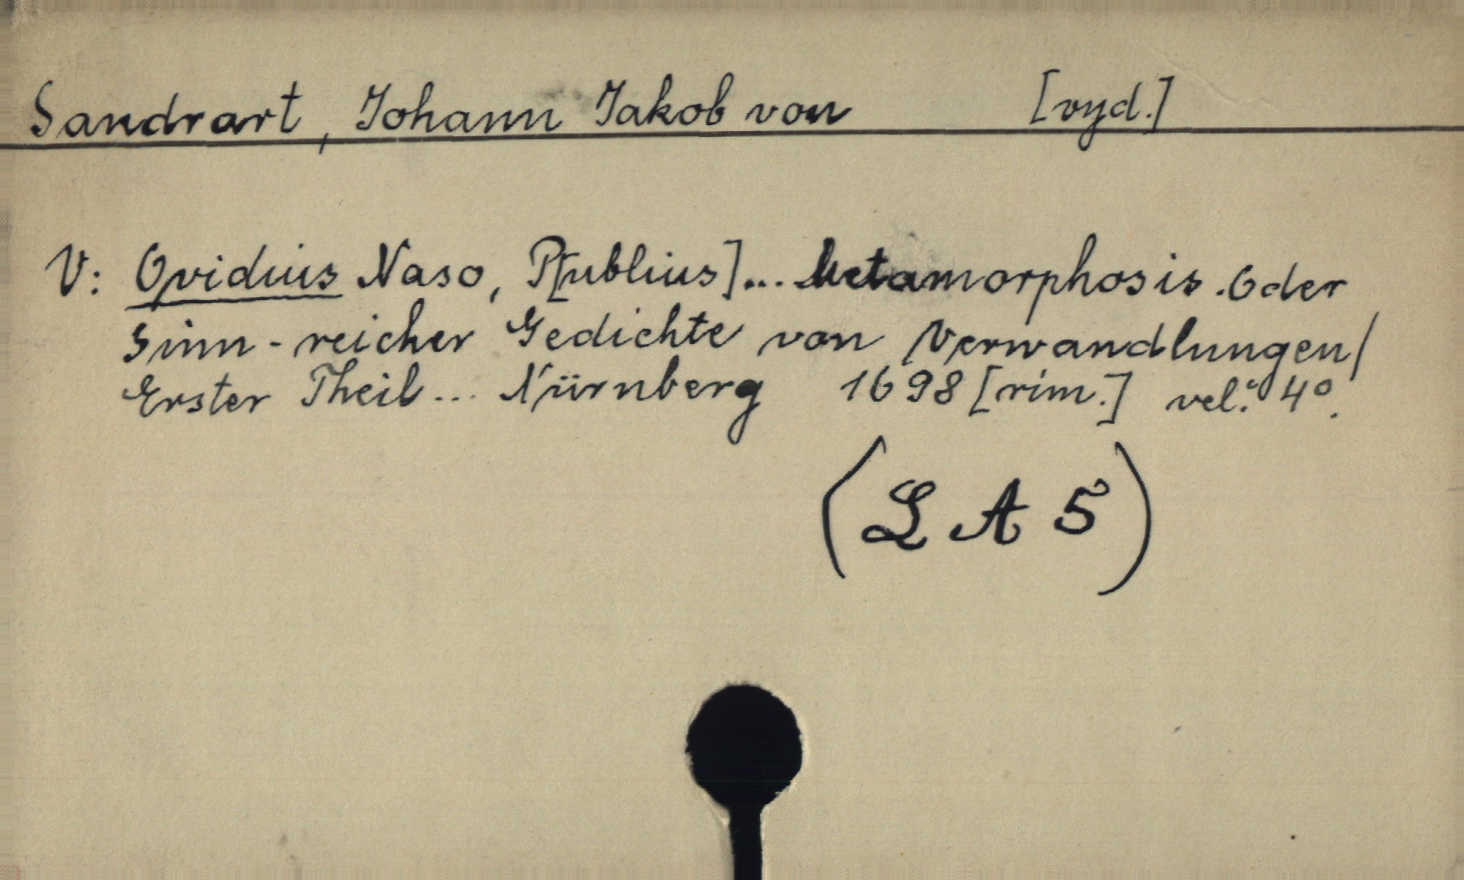 Sandrart, Johann Jakob von [vyd.]
V: Ovidius Naso, P[ublius]... Metamorphosis. Oder
Sinn-reicher Gedichte von Verwandlungen/
Erster Theil... Nürnberg 1698 [rim.] vel. 4°.
(L A 5)